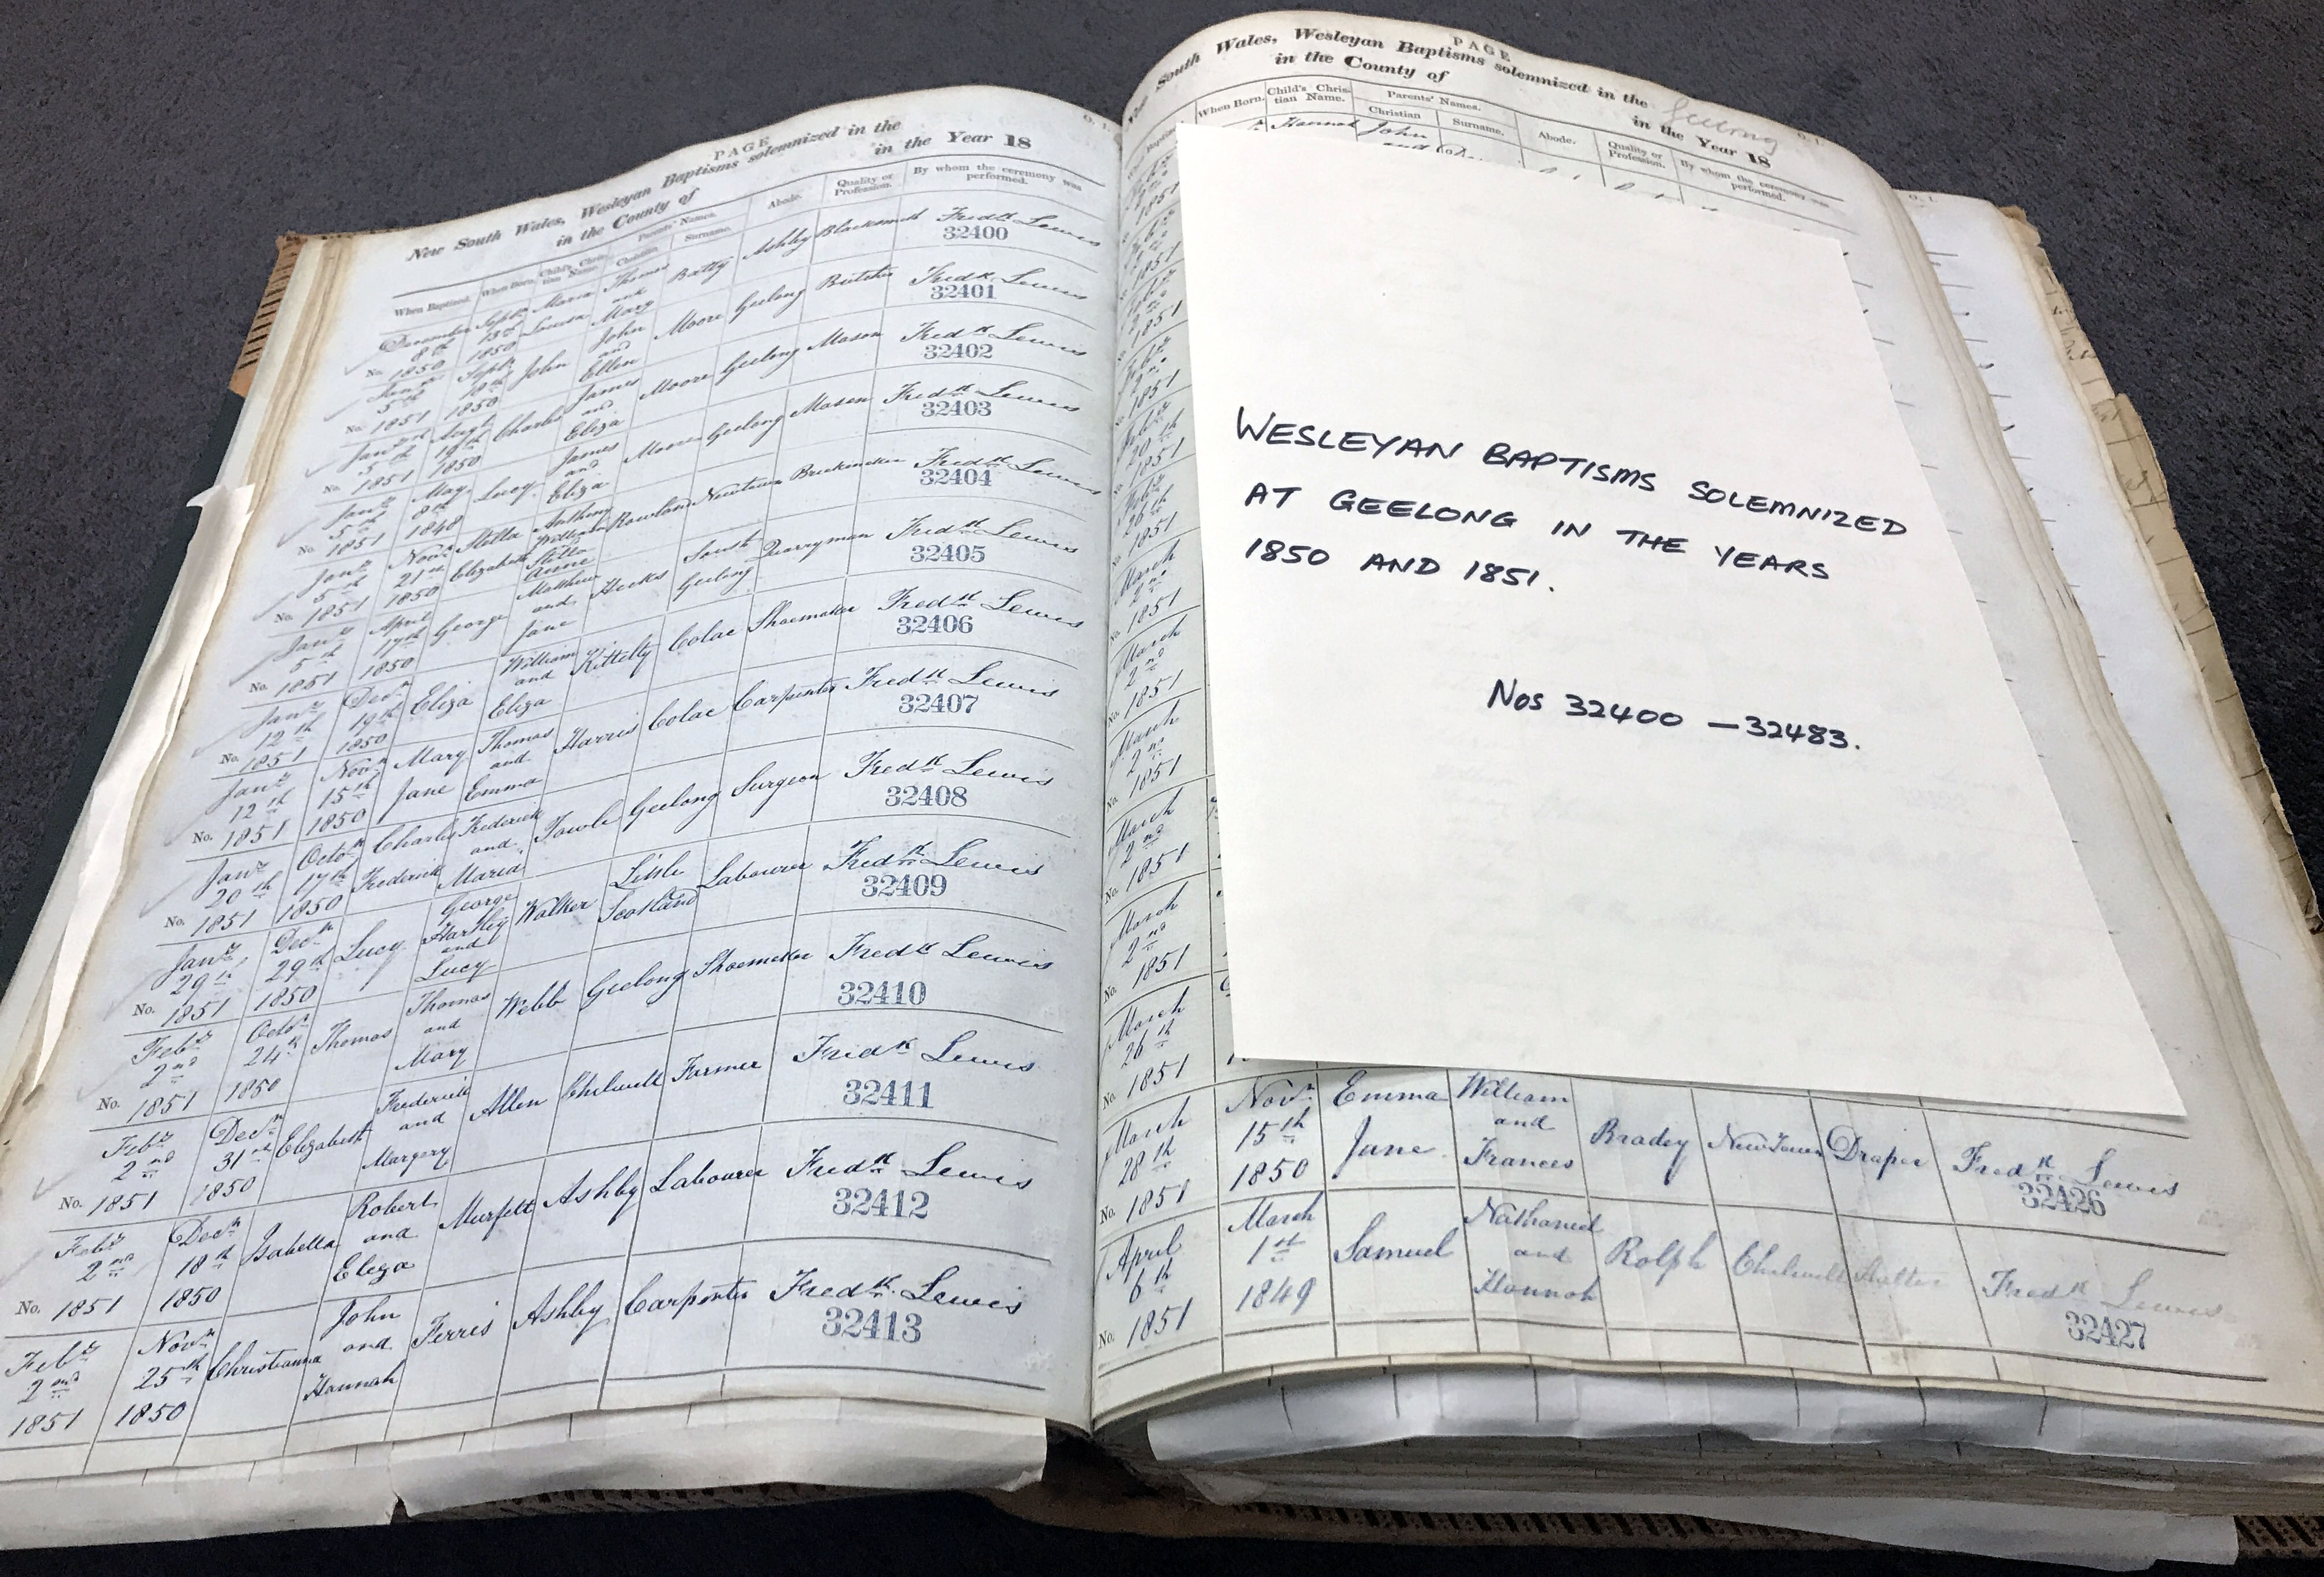 PAGE
New South Wales, Wesleyan Baptisms solemnized in the
in the County of in the Year 18
When Baptized. When Born. Child's Christian Name. Parents' Names. Christian Surname. Abode. Quality or Profession. By whom the ceremony was performed.
December 8th 1850 Septr 13th 1850 Maria Louisa Thomas and Mary Batty Ashby Blacksmith Fredk Lewis
32400
No.
Jany 5th 1851 Septr 10th 1850 John John and Ellen Moore Geelong Butcher Fredk Lewis
32401
No.
Jany 5th 1851 Augt 19th 1850 Charles James and Eliza Moore Geelong Mason Fredk Lewis
32402
No.
Jany 5th 1851 May 8th 1848 Lucy James and Eliza Moore Geelong Mason Fredk Lewis
32403
No.
Jany 5th 1851 Novr 21st 1850 Stilla Elizabeth Anthony William Stilla Anne Rowland Newtown Brickmaker Fredk Lewis
32404
No.
Jany 5th 1851 April 17th 1850 George Matthew and Jane Hicks South Geelong Quarryman Fredk Lewis
32405
No.
Jany 12th 1851 Decr 19th 1850 Eliza William and Eliza Kittelty Colac Shoemaker Fredk Lewis
32406
No.
Jany 12th 1851 Novr 15th 1850 Mary Jane Thomas and Emma Harris Colac Carpenter Fredk Lewis
32407
No.
Jany 20th 1851 Octobr 17th 1850 Charles Frederick Frederick and Maria Towle Geelong Surgeon Fredk Lewis
32408
No.
Jany 29th 1851 Decr 29th 1850 Lucy George Hartley and Lucy Walker Little Scotland Labourer Fredk Lewis
32409
No.
Feby 2nd 1851 Octobr 24th 1850 Thomas Thomas and Mary Webb Geelong Shoemaker Fredk Lewis
32410
No.
Feby 2nd 1851 Decr 31st 1850 Elizabeth Frederick and Margery Allen Chilwell Farmer Fredk Lewis
32411
No.
Feby 2nd 1851 Decr 18th 1850 Isabella Robert and Eliza Murfett Ashby Labourer Fredk Lewis
32412
No.
Feby 2nd 1851 Novr 25th 1850 Christianna John and Hannah Ferris Ashby Carpenter Fredk Lewis
32413
PAGE
South Wales, Wesleyan Baptisms solemnized in the Geelong
in the County of in the Year 18
When Born. Child's Christian Name. Parents' Names. Christian Surname. Abode. Quality or Profession. By whom the ceremony was performed.
Hannah John and
WESLEYAN BAPTISMS SOLEMNIZED
AT GEELONG IN THE YEARS
1850 AND 1851.
Nos 32400 — 32483.
March 2nd 1851
No.
March 2nd 1851
No.
March 2nd 1851
No.
March 2nd 1851
No.
March 2nd 1851
No.
March 26th 1851
No.
March 28th 1851 Novr 15th 1850 Emma Jane William and Frances Bradey NewTown Draper Fredk Lewis
32426
No.
April 6th 1851 March 1st 1849 Samuel Nathaniel and Hannah Rolph Chilwell Fredk Lewis
32427
No.